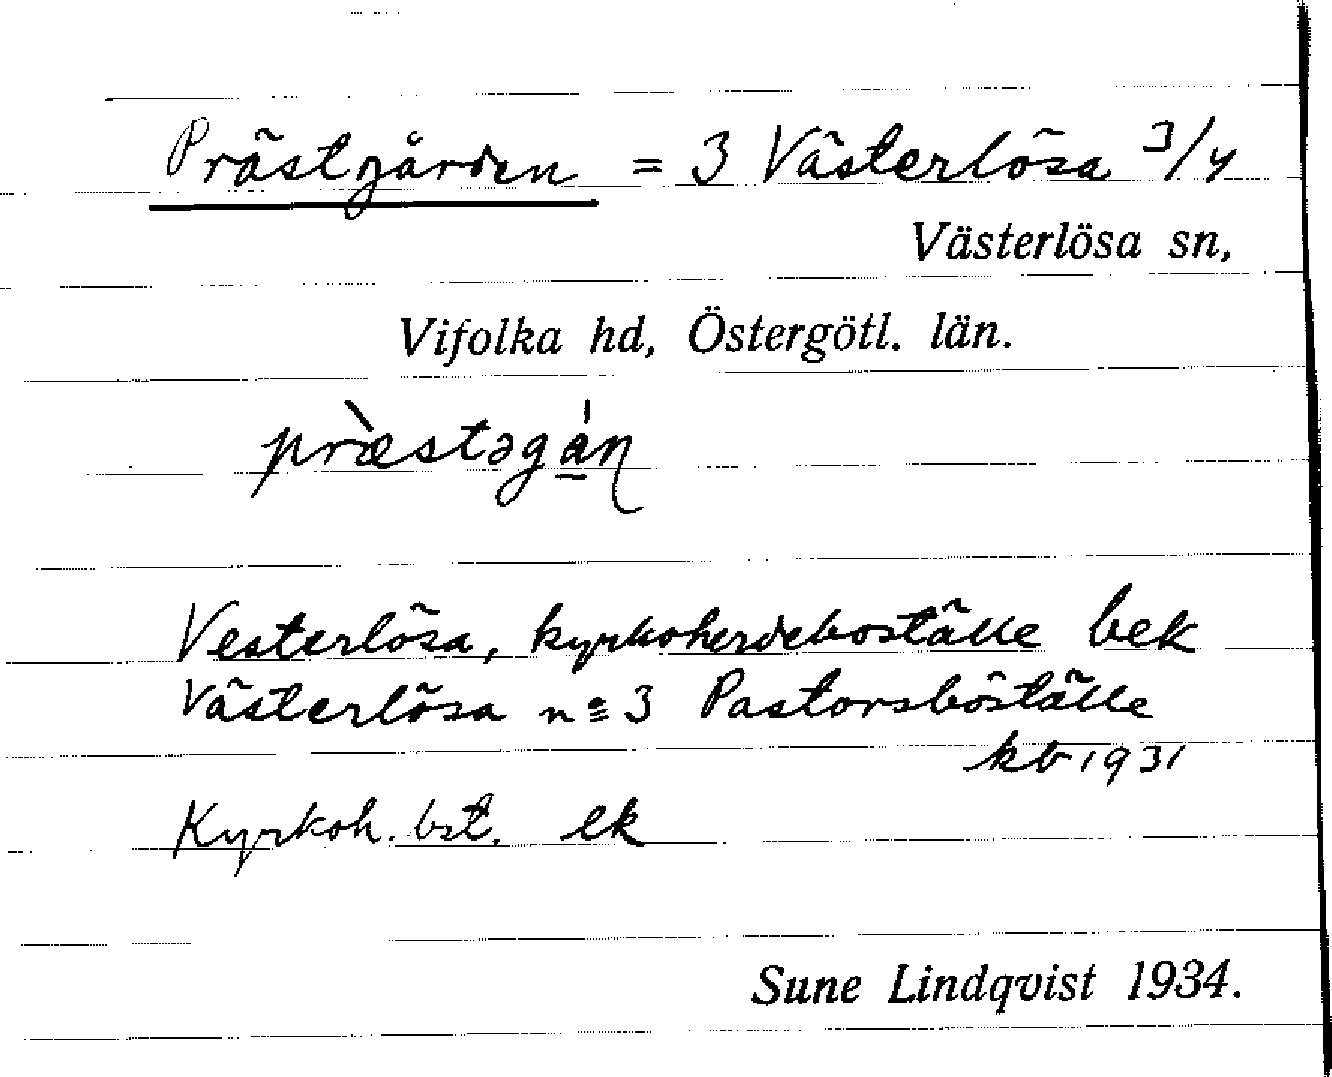 Prästgården = 3 Västerlösa 3/4
Västerlösa sn,
Vifolka hd, Östergötl. län.
præ̀stəgán
Vesterlösa, kyrkoherdeboställe bek
Västerlösa nº 3 Pastorsboställe
kb 1931
Kyrkoh. bst. ek
Sune Lindqvist 1934.